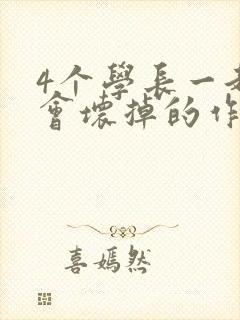 4个學長一
會壞掉的作
喜嫣然